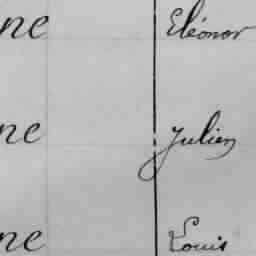 ne Eléonor
ne Julien
ne Louis